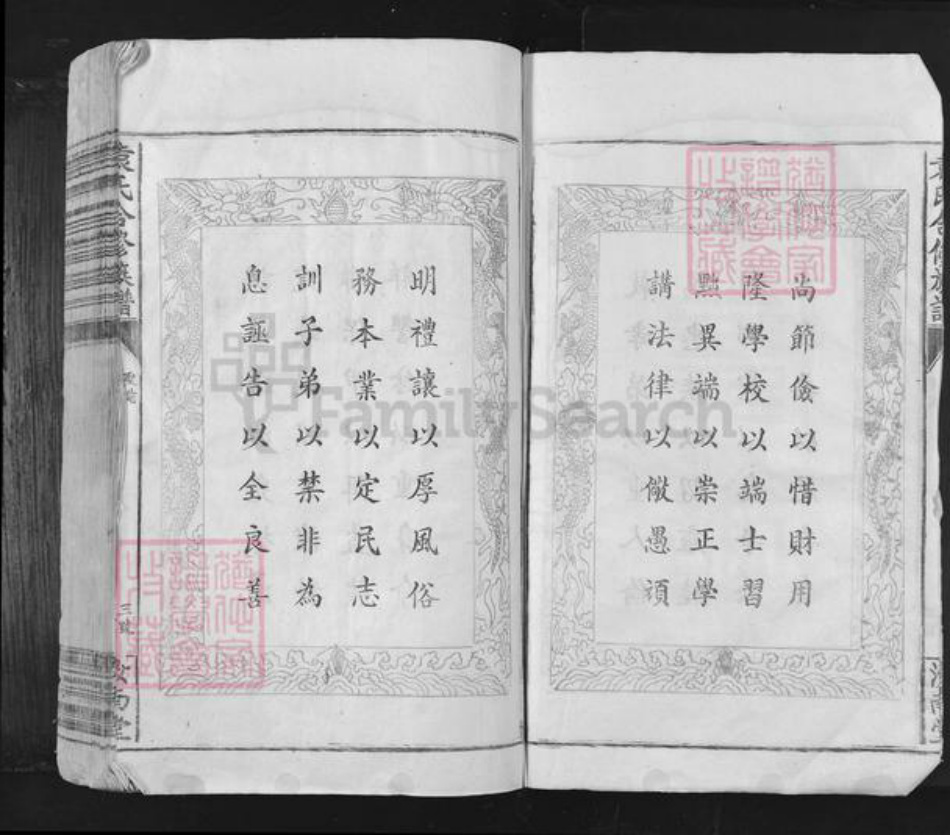 尚節儉以惜財用
隆學校以端士習
黜異端以崇正學
講法律以儆愚頑
明禮讓以厚風俗
務本業以定民志
訓子弟以禁非為
息誣告以全良善
袁氏合修族譜
FamilySearch